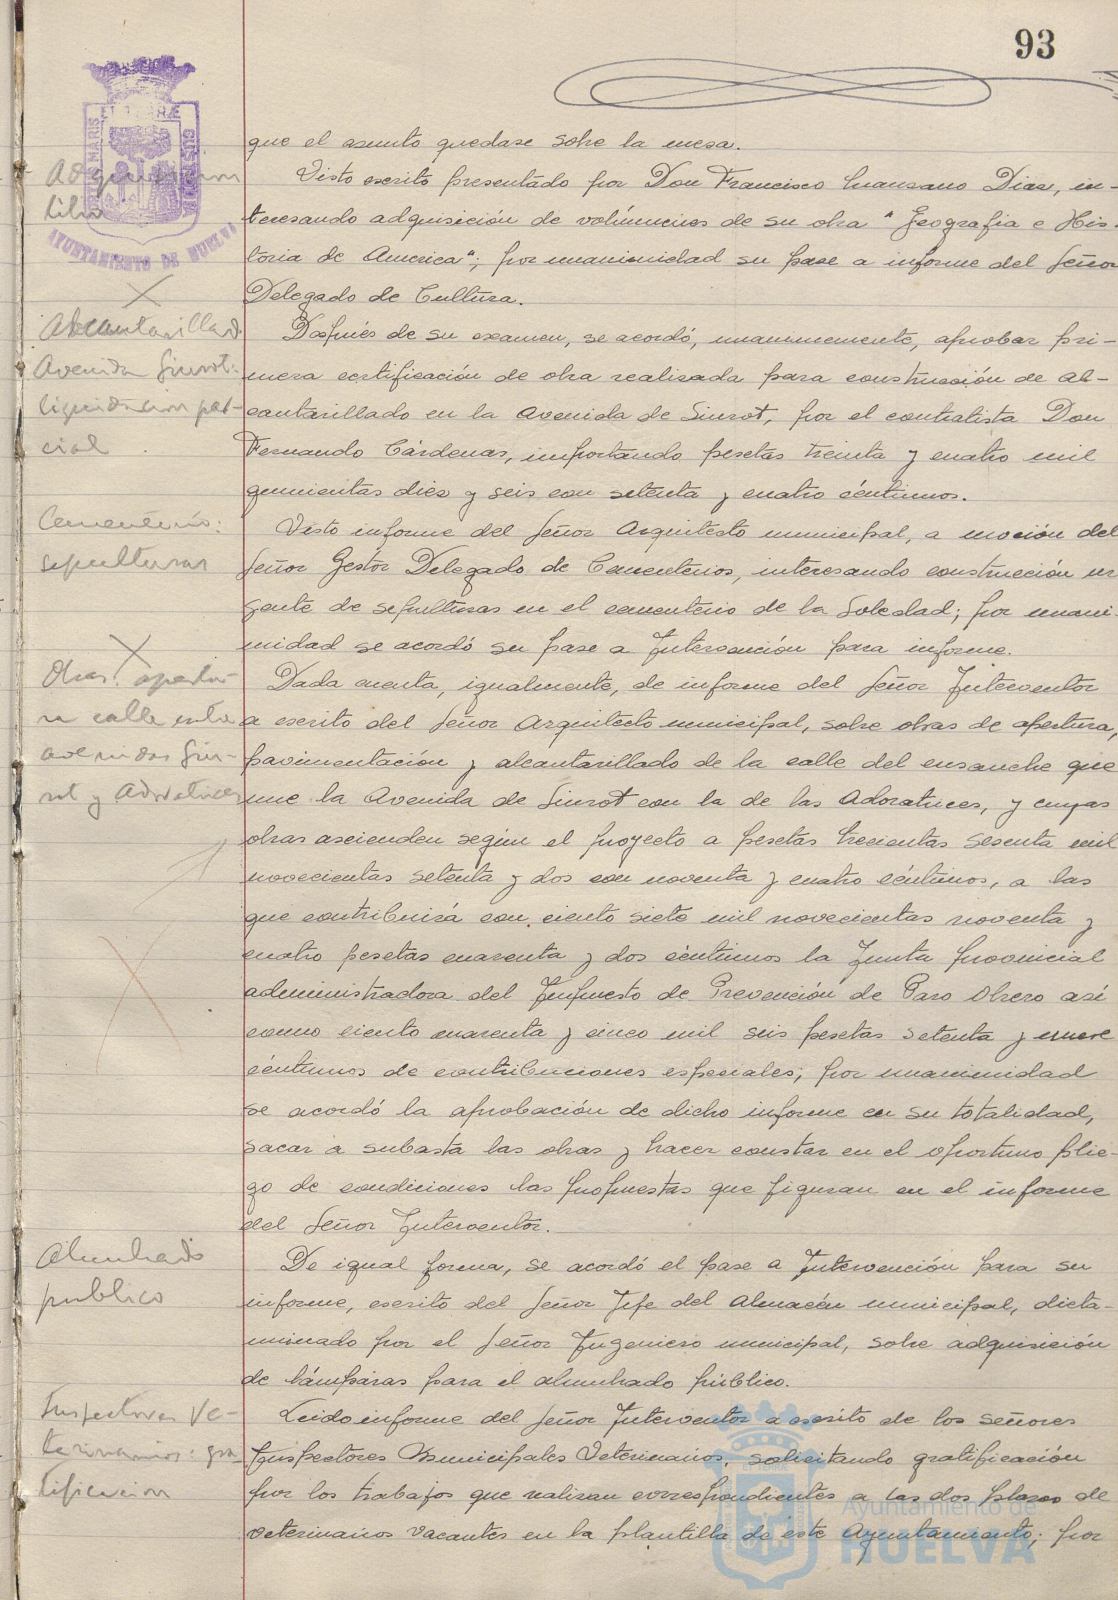 93
PORTUS MARIS ET TERRÆ CUSTODIA
AYUNTAMIENTO DE HUELVA
que el asunto quedase sobre la mesa.
Adquisición
libro
Visto escrito presentado por Don Francisco Manzano Dias, in-
teresando adquisición de volúmenes de su obra "Geografia e His-
toria de America"; por unanimidad su pase a informe del Señor
Delegado de Cultura.
Alcantarillado
Avenida Siurot:
liquidacion par-
cial
Después de su examen, se acordó, unanimemente, aprobar pri-
mera certificación de obra realizada para construcción de al-
cantarillado en la Avenida de Siurot, por el contratista Don
Fernando Cárdenas, importando pesetas treinta y cuatro mil
quinientas diez y seis con setenta y cuatro céntimos.
Cementerio:
sepulturas
Visto informe del Señor Arquitecto municipal, a moción del
Señor Gestor Delegado de Cementerios, interesando construcción ur
gente de sepulturas en el cementerio de la Soledad; por unani-
midad se acordó su pase a Intervención para informe.
Obras: apertu-
ra calle entre
avenidas Siu-
rot y Adoratrices
Dada cuenta, igualmente, de informe del Señor Interventor
a escrito del Señor Arquitecto municipal, sobre obras de apertura,
pavimentación y alcantarillado de la calle del ensanche que
une la Avenida de Siurot con la de las Adoratrices, y cuyas
obras ascienden según el proyecto a pesetas trecientas sesenta mil
novecientas setenta y dos con noventa y cuatro céntimos, a las
que contribuirá con ciento siete mil novecientas noventa y
cuatro pesetas cuarenta y dos céntimos la Junta provincial
administradora del Impuesto de Prevención de Paro Obrero así
como ciento cuarenta y cinco mil seis pesetas setenta y nueve
céntimos de contribuciones especiales; por unanimidad
se acordó la aprobación de dicho informe en su totalidad,
sacar a subasta las obras y hacer constar en el oportuno plie-
go de condiciones las propuestas que figuran en el informe
del Señor Interventor.
Alumbrado
publico
De igual forma, se acordó el pase a Intervención para su
informe, escrito del Señor Jefe del Almacén municipal, dicta-
minado por el Señor Ingeniero municipal, sobre adquisición
de lámparas para el alumbrado público.
Inspectores Ve-
terinarios: gra
tificacion
Leido informe del Señor Interventor a escrito de los señores
Inspectores Municipales Veterinarios, solicitando gratificación
por los trabajos que realizan correspondientes a las dos plazas de
veterinarios vacantes en la plantilla de este Ayuntamiento; por
Ayuntamiento de
HUELVA